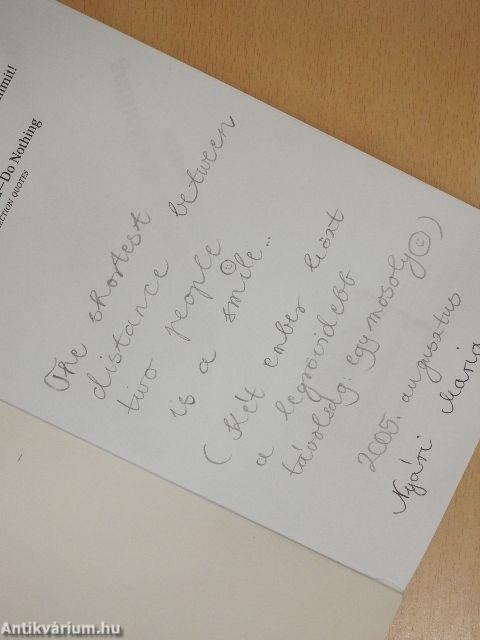 mmit!
—Do Nothing
ECTION QUOTES
The shortest
distance between
two people
is a smile...
(Két ember közt
a legrövidebb
távolság: egy mosoly)
2005. augusztus
Nyári Mária
Antikvárium.hu